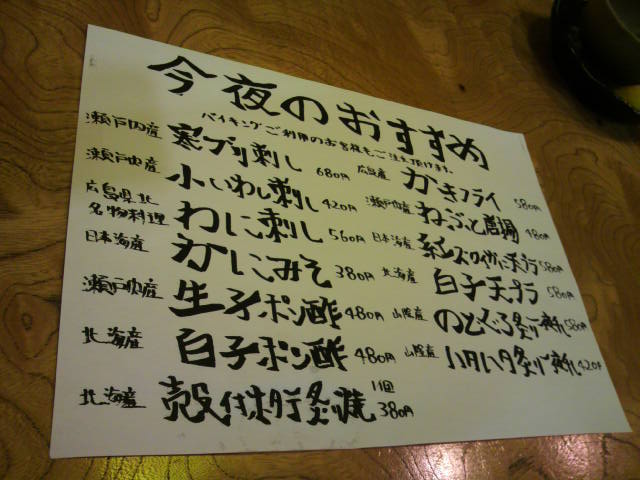 今夜のおすすめ
バイキングご利用のお客様もご注文頂けます。
瀬戸内産 寒ブリ刺し 680円
瀬戸内産 小いわし刺し 420円
広島県北名物料理 わに刺し 560円
日本海産 かにみそ 380円
瀬戸内産 生子ポン酢 480円
北海産 白子ポン酢 480円
北海産 殻付ホタテ炙り焼 1個 380円
広島産 かきフライ 580円
瀬戸内産 ねぶと唐揚 480円
日本海産 紅ズワイガニ天プラ 580円
北海産 白子天プラ 580円
山陰産 のどぐろ炙り刺し 580円
山陰産 ハタハタ炙り刺し 420円